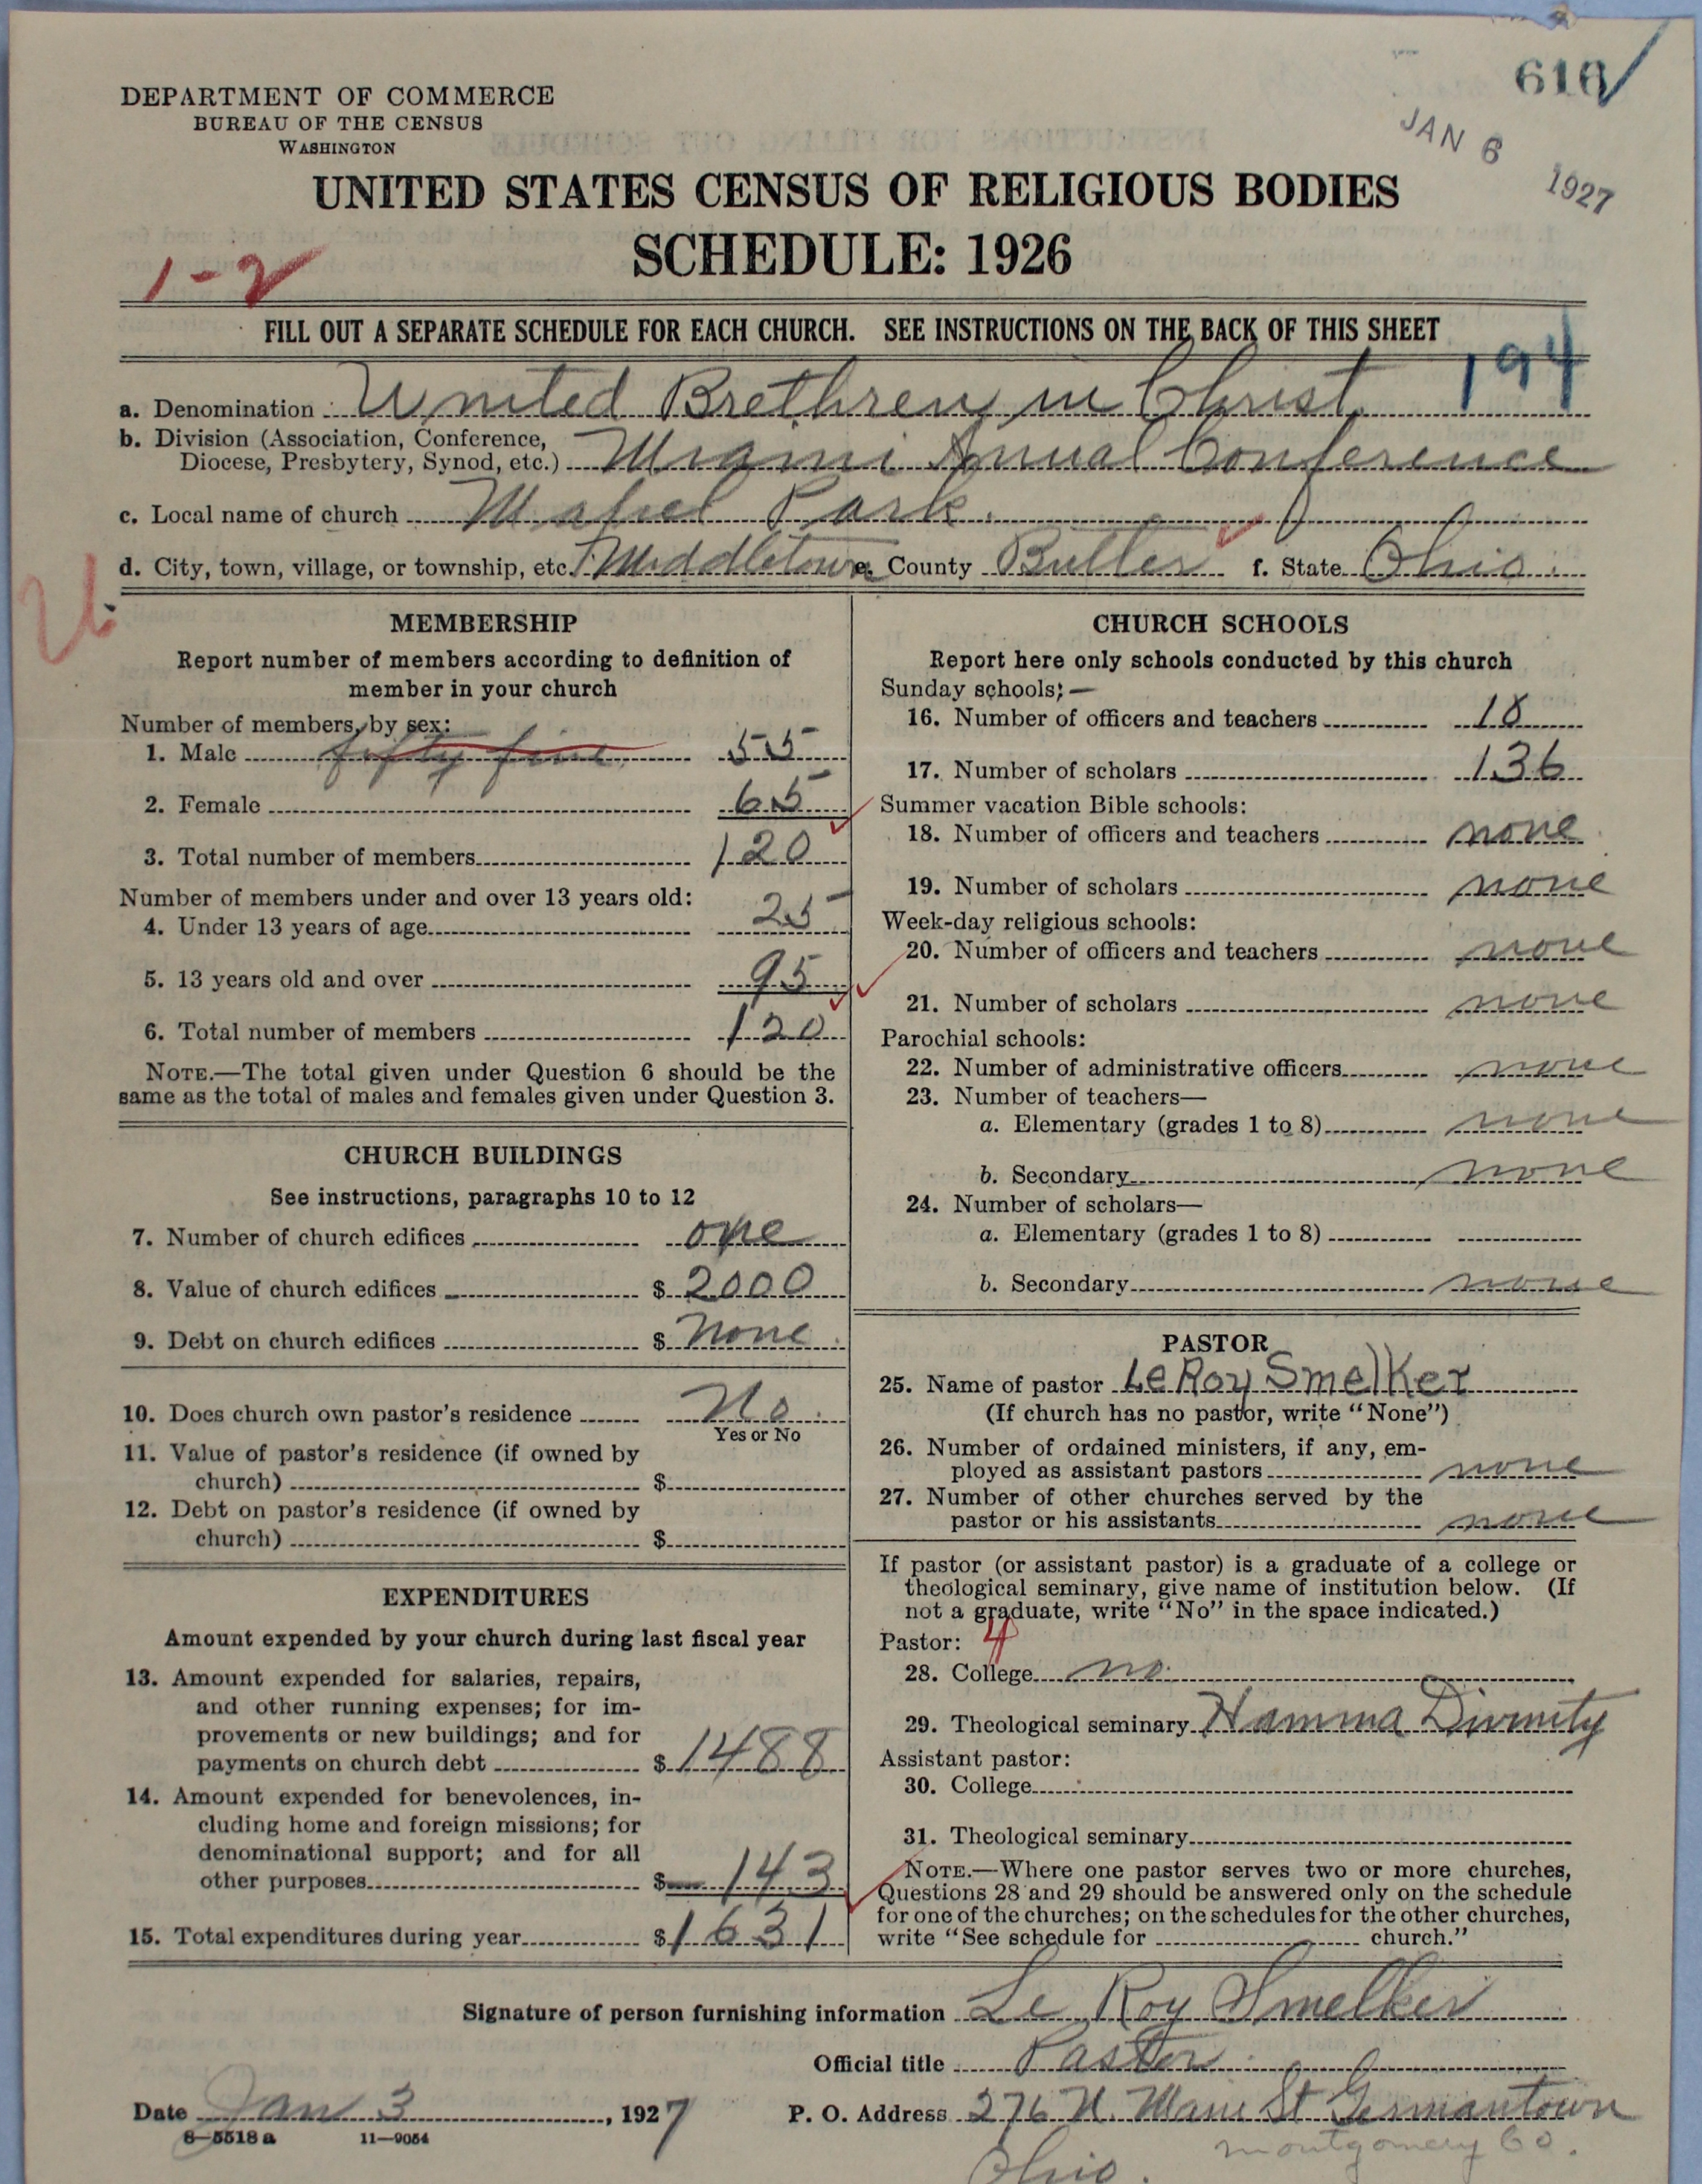 616
JAN 6 1927
DEPARTMENT OF COMMERCE
BUREAU OF THE CENSUS
WASHINGTON
UNITED STATES CENSUS OF RELIGIOUS BODIES
SCHEDULE: 1926
1-2
FILL OUT A SEPARATE SCHEDULE FOR EACH CHURCH. SEE INSTRUCTIONS ON THE BACK OF THIS SHEET
194
a. Denomination United Brethren in Christ
b. Division (Association, Conference,
Diocese, Presbytery, Synod, etc.) Miami Annual Conference
c. Local name of church Mabel Park.
d. City, town, village, or township, etc. Middletown e. County Butler f. State Ohio.
MEMBERSHIP
Report number of members according to definition of
member in your church
Number of members, by sex:
1. Male fifty five 55
2. Female 65
3. Total number of members 120
Number of members under and over 13 years old:
4. Under 13 years of age 25
5. 13 years old and over 95
6. Total number of members 120
NOTE.—The total given under Question 6 should be the
same as the total of males and females given under Question 3.
CHURCH BUILDINGS
See instructions, paragraphs 10 to 12
7. Number of church edifices one
8. Value of church edifices $ 2000
9. Debt on church edifices $ None.
10. Does church own pastor's residence No.
Yes or No
11. Value of pastor's residence (if owned by
church) $
12. Debt on pastor's residence (if owned by
church) $
EXPENDITURES
Amount expended by your church during last fiscal year
13. Amount expended for salaries, repairs,
and other running expenses; for im-
provements or new buildings; and for
payments on church debt $ 1488
14. Amount expended for benevolences, in-
cluding home and foreign missions; for
denominational support; and for all
other purposes $ 143
15. Total expenditures during year $ 1631
CHURCH SCHOOLS
Report here only schools conducted by this church
Sunday schools:—
16. Number of officers and teachers 18
17. Number of scholars 136
Summer vacation Bible schools:
18. Number of officers and teachers none
19. Number of scholars none
Week-day religious schools:
20. Number of officers and teachers none
21. Number of scholars none
Parochial schools:
22. Number of administrative officers none
23. Number of teachers—
a. Elementary (grades 1 to 8) none
b. Secondary none
24. Number of scholars—
a. Elementary (grades 1 to 8)
b. Secondary none
PASTOR
25. Name of pastor LeRoy Smelker
(If church has no pastor, write "None")
26. Number of ordained ministers, if any, em-
ployed as assistant pastors none
27. Number of other churches served by the
pastor or his assistants none
If pastor (or assistant pastor) is a graduate of a college or
theological seminary, give name of institution below. (If
not a graduate, write "No" in the space indicated.)
Pastor: 4
28. College no.
29. Theological seminary Hamma Divinity
Assistant pastor:
30. College
31. Theological seminary
NOTE.—Where one pastor serves two or more churches,
Questions 28 and 29 should be answered only on the schedule
for one of the churches; on the schedules for the other churches,
write "See schedule for church."
Signature of person furnishing information Le Roy Smelker
Official title Pastor.
Date Jan 3, 1927 P. O. Address 276 N. Main St Germantown
8—5518 a 11—9054 Montgomery Co.
Ohio.